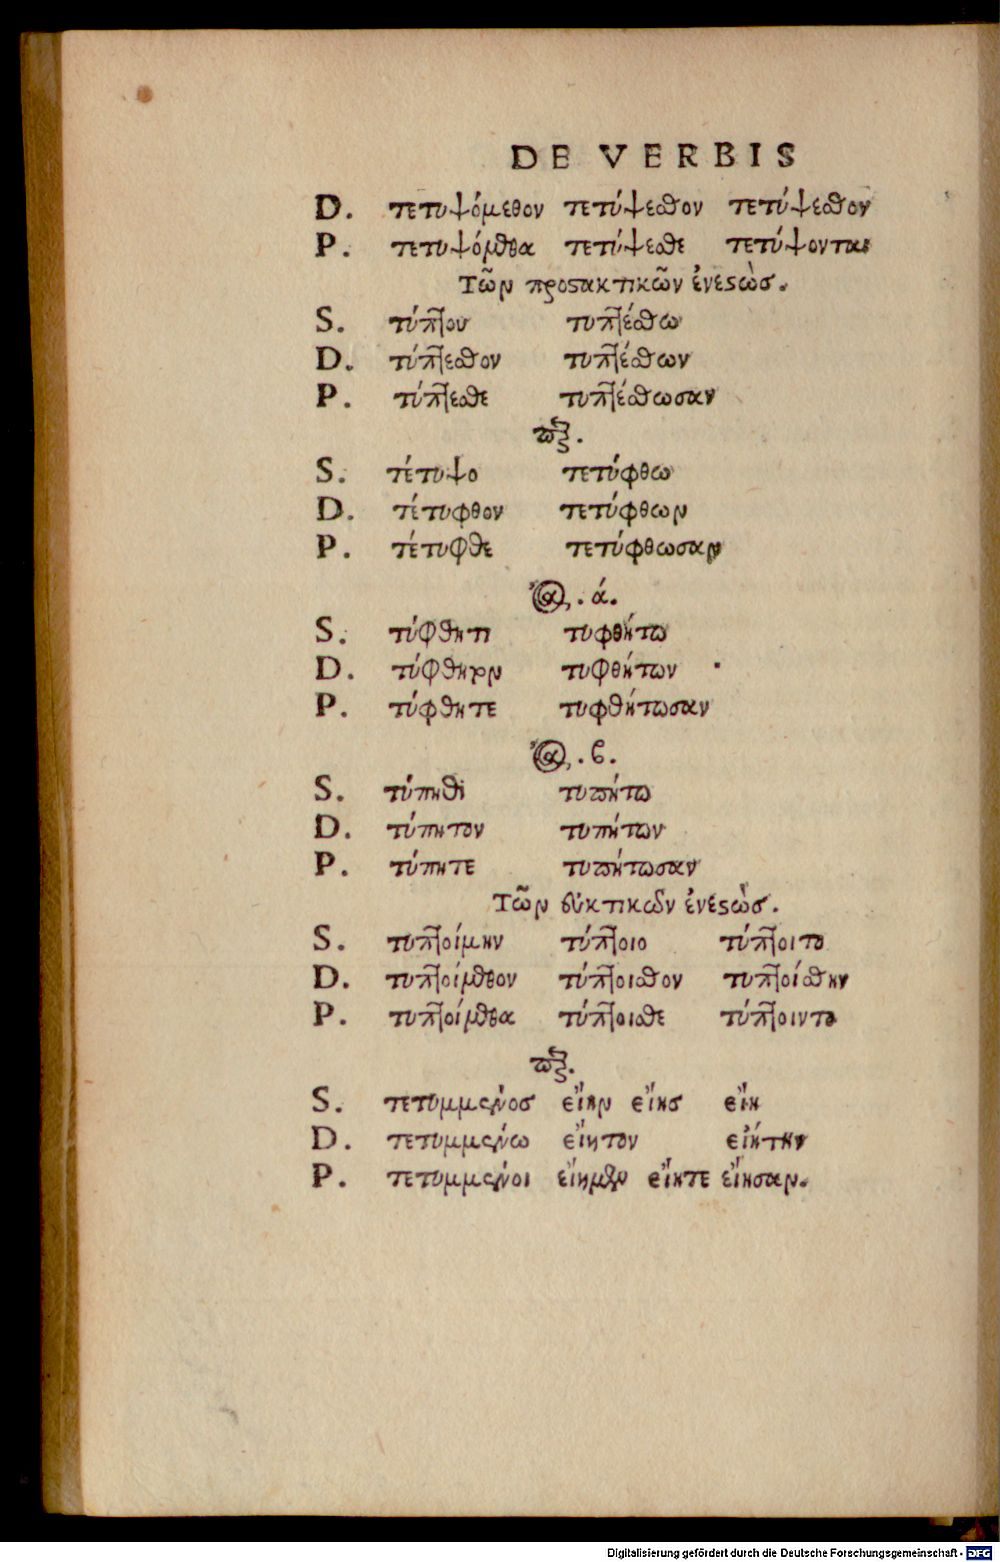 DE VERBIS
D. τετυψόμεθον τετύψεσθον τετύψεσθον
P. τετυψόμεθα τετύψεσθε τετύψονται
Τῶν προστακτικῶν ἐνεστώσ.
S. τύπτου τυπτέσθω
D. τύπτεσθον τυπτέσθων
P. τύπτεσθε τυπτέσθωσαν
S. τέτυψο τετύφθω
D. τέτυφθον τετύφθων
P. τέτυφθε τετύφθωσαν
ά.
S. τύφθητι τυφθήτω
D. τύφθητον τυφθήτων
P. τύφθητε τυφθήτωσαν
β.
S. τύπηθι τυπήτω
D. τύπητον τυπήτων
P. τύπητε τυπήτωσαν
Τῶν εὐκτικῶν ἐνεστώσ.
S. τυπτοίμην τύπτοιο τύπτοιτο
D. τυπτοίμεθον τύπτοισθον τυπτοίσθην
P. τυπτοίμεθα τύπτοισθε τύπτοιντο
S. τετυμμένοσ εἴην εἴησ εἴη
D. τετυμμένω εἴητον εἰήτην
P. τετυμμένοι εἴημεν εἴητε εἴησαν.
Digitalisierung gefördert durch die Deutsche Forschungsgemeinschaft - DFG